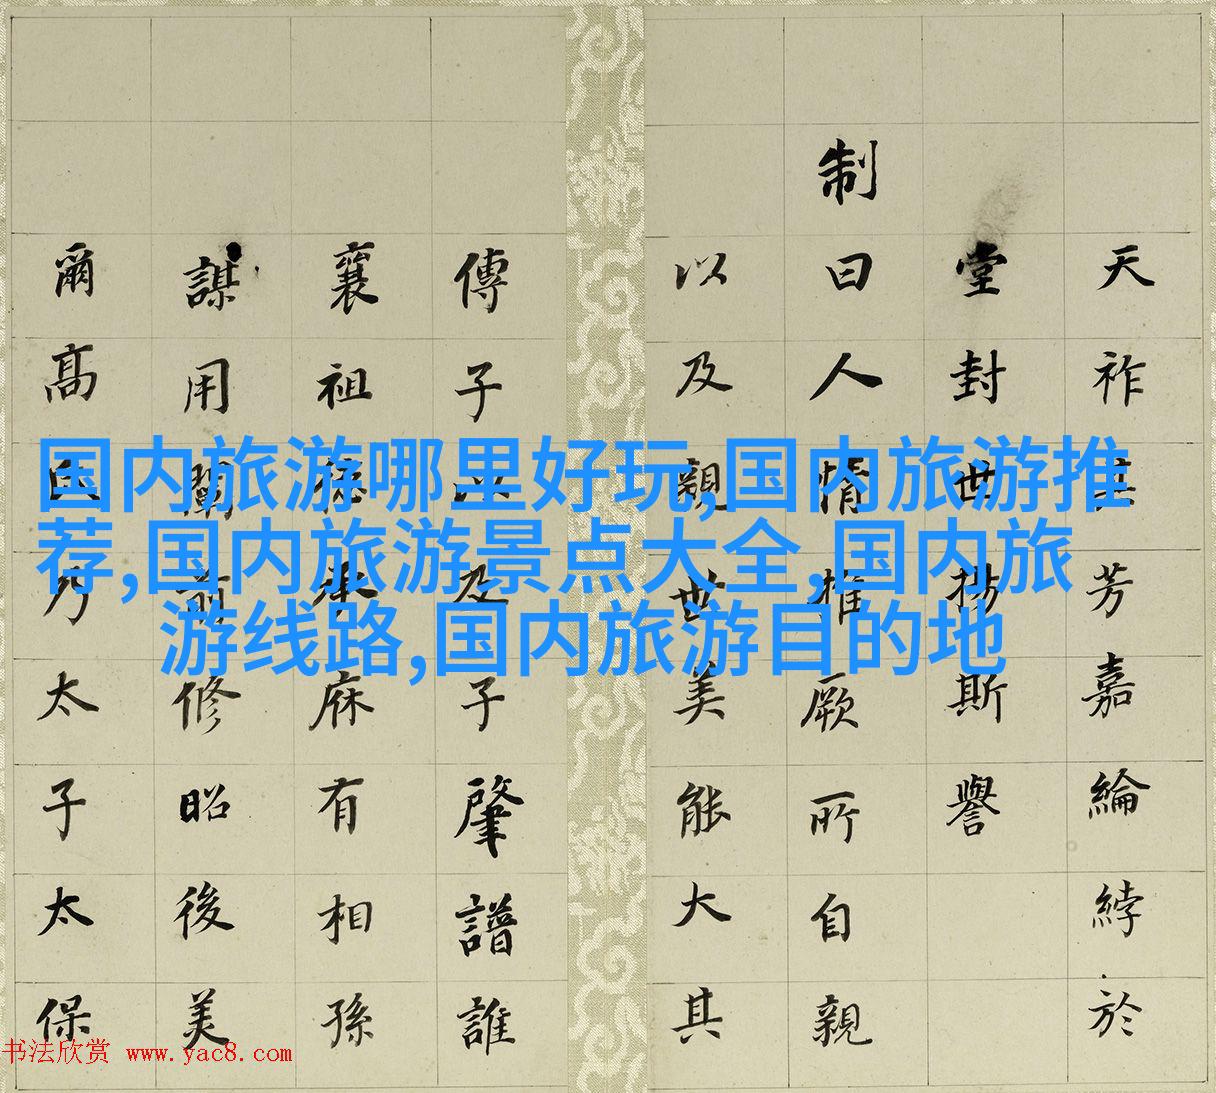 国内旅游哪里好玩,国内旅游推
荐,国内旅游景点大全,国内旅
游线路,国内旅游目的地
天祚其芳嘉綸綍於
堂封世揚斯譽
制曰人情推厥所自親
以及親世美能大其
傳子以及子肇譜誰
襄祖德承庥有相孫
謀用闡前修昭後美
爾高氏乃太子太保
书法欣赏 www.yac8.com